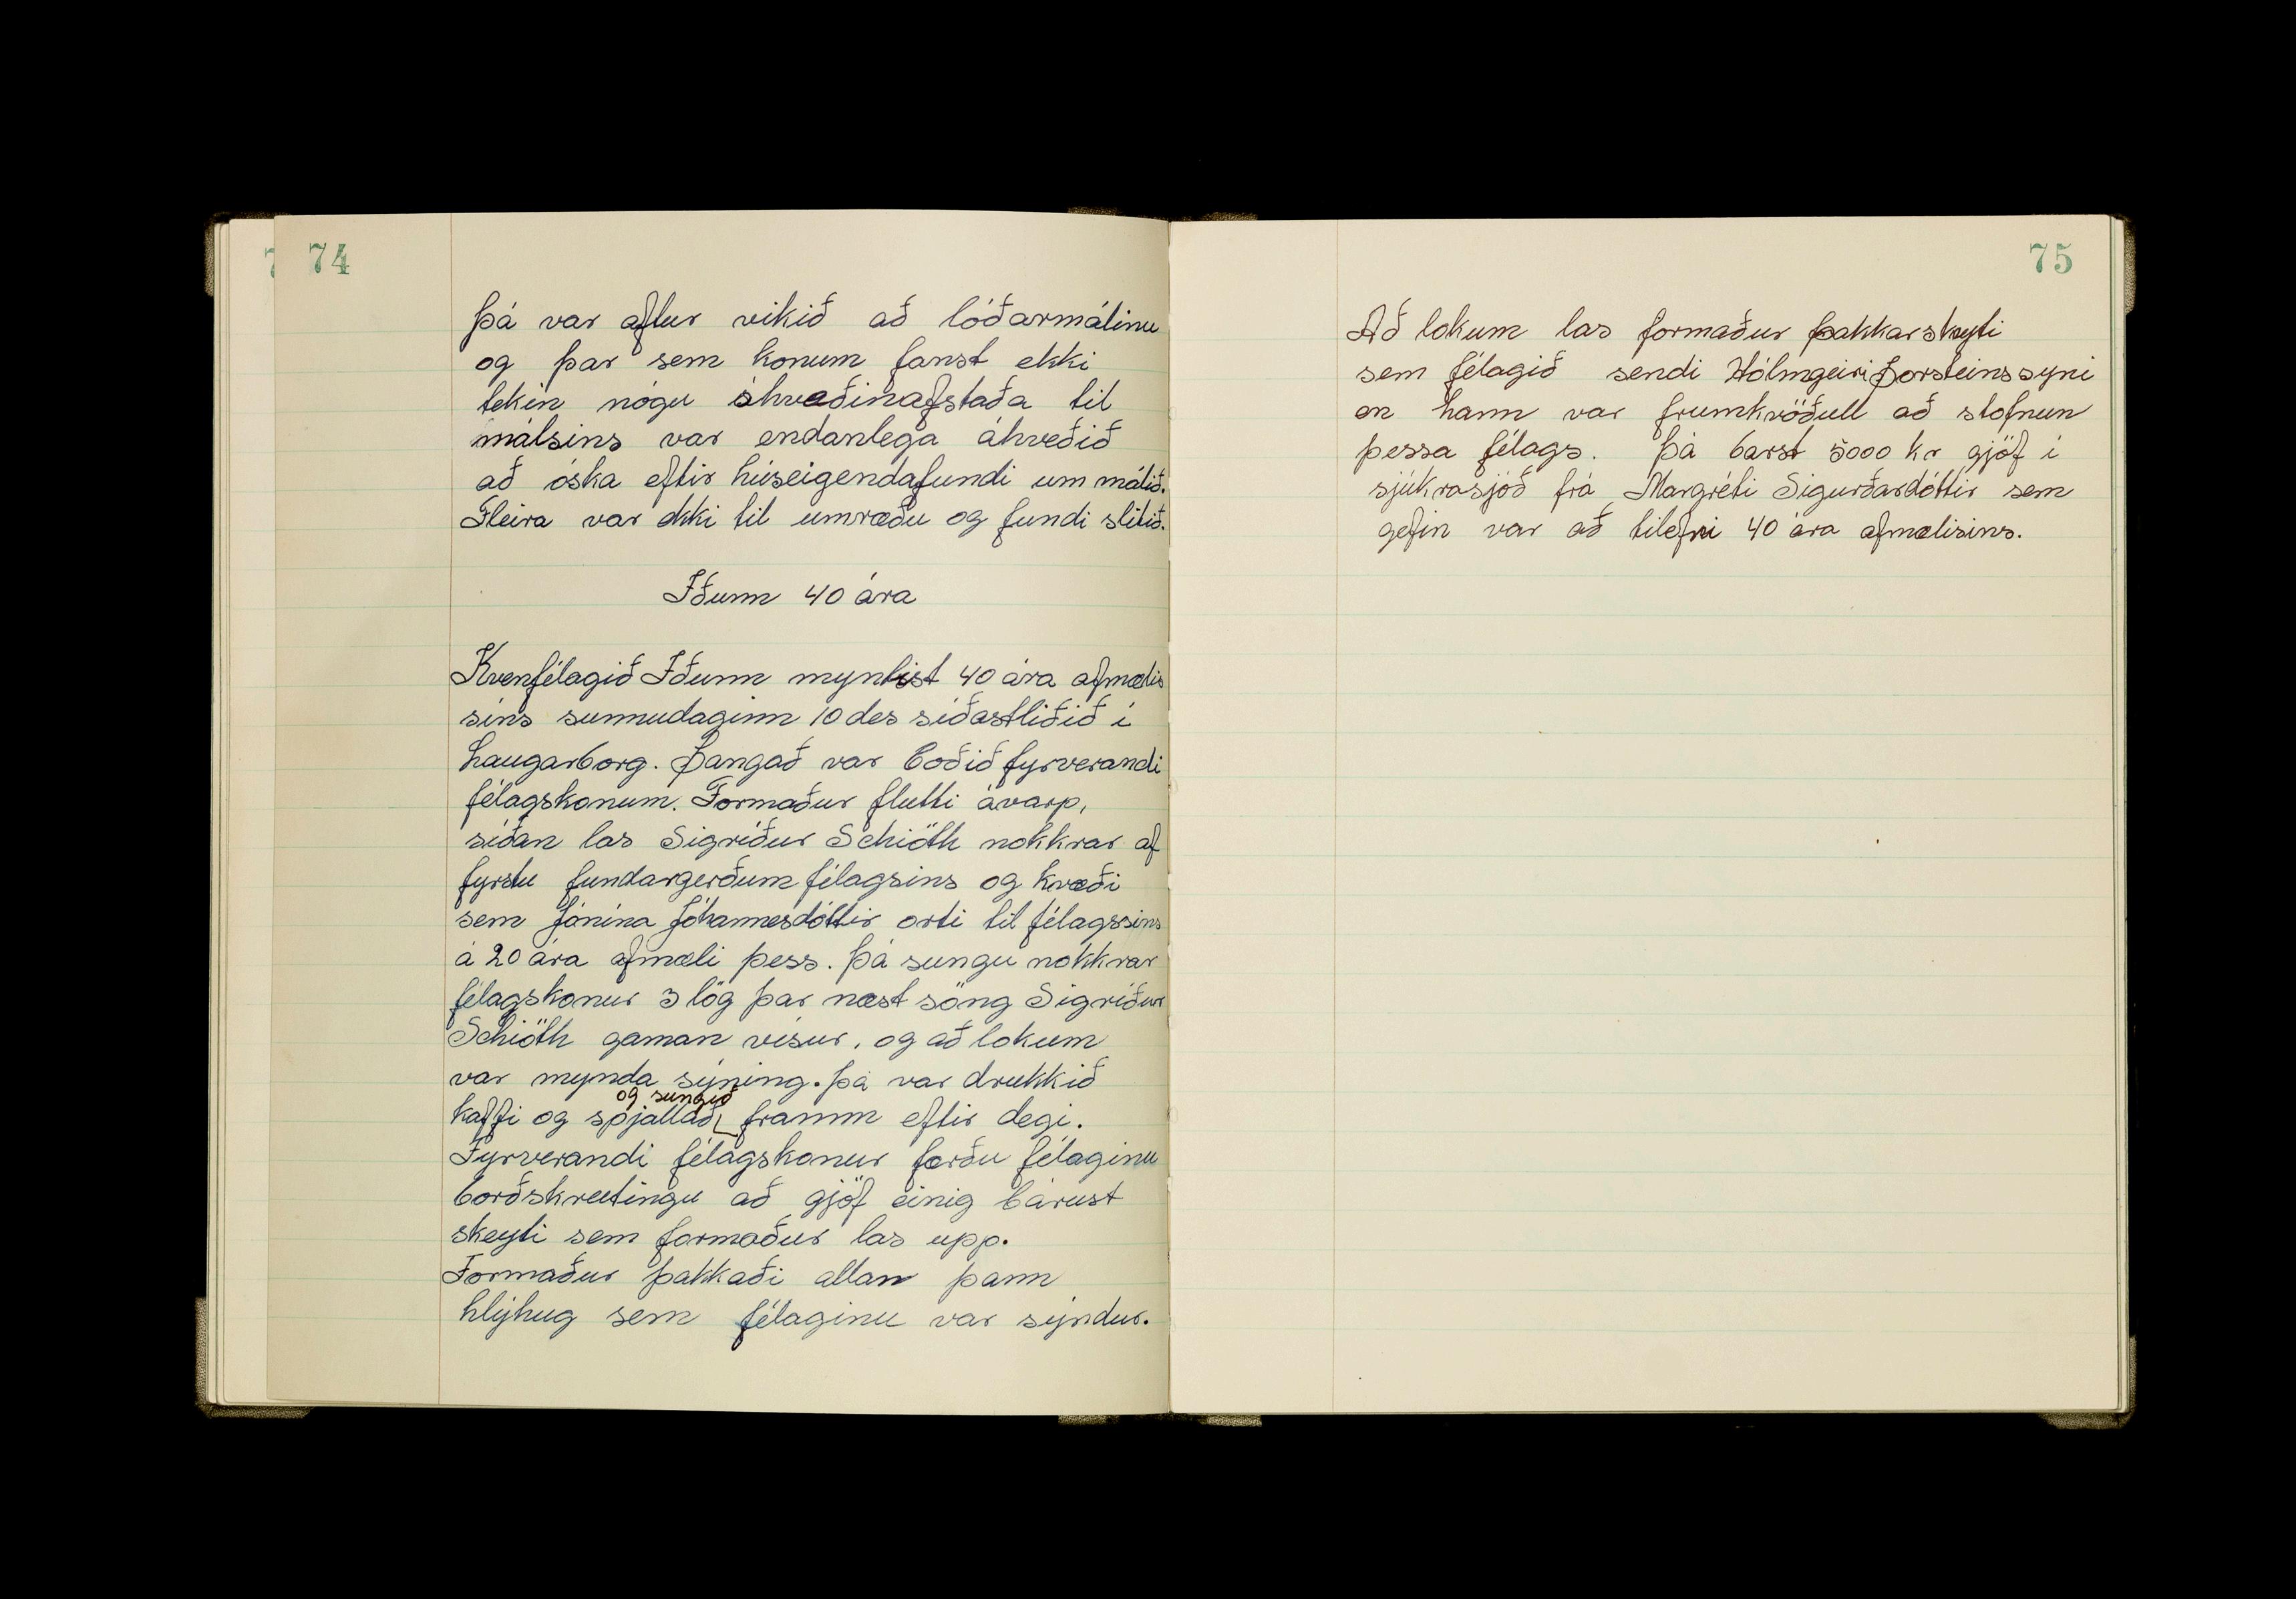 74
Þá var aftur vikið að lóðarmálinu
og þar sem konum fanst ekki
tekin nógu ákveðinafstaða til
málsins var endanlega ákveðið
að óska eftir húseigendafundi um málið.
Fleira var ekki til umræðu og fundi slitið.
Iðunn 40 ára
Kvenfélagið Iðunn myntist 40 ára afmælis
sins sunnudaginn 10 des siðastliðið i
Laugarborg. Þangað var boðið fyrverandi
félagskonum. Formaður flutti ávarp,
síðan las Sigríður Schiöth nokkrar af
fyrstu fundargerðum félagsins og kvæði
sem Jónína Jóhannesdóttir orti til félagssins
á 20 ára afmæli þess. Þá sungu nokkrar
félagskonur 3 lög þar næst söng Sigríður
Schiöth gaman vísur, og að lokum
var mynda sýning. Þá var drukkið
og sungið
kaffi og spjallað framm eftir degi.
Fyrverandi félagskonur færðu félaginu
borðskreutingu að gjöf einig bárust
skeyti sem formaður las upp.
Formaður þakkaði allan þann
hlýhug sem félaginu var sýndur.
75
Að lokum las formaður þakkarskeyti
sem félagið sendi Hólmgeiri Þorsteinssyni
en hann var frumkvöðull að stofnun
þessa félags. Þá barst 5000 kr gjöf i
sjúkrasjóð frá Margréti Sigurðardóttir sem
gefin var að tilefni 40 ára afmælisins.